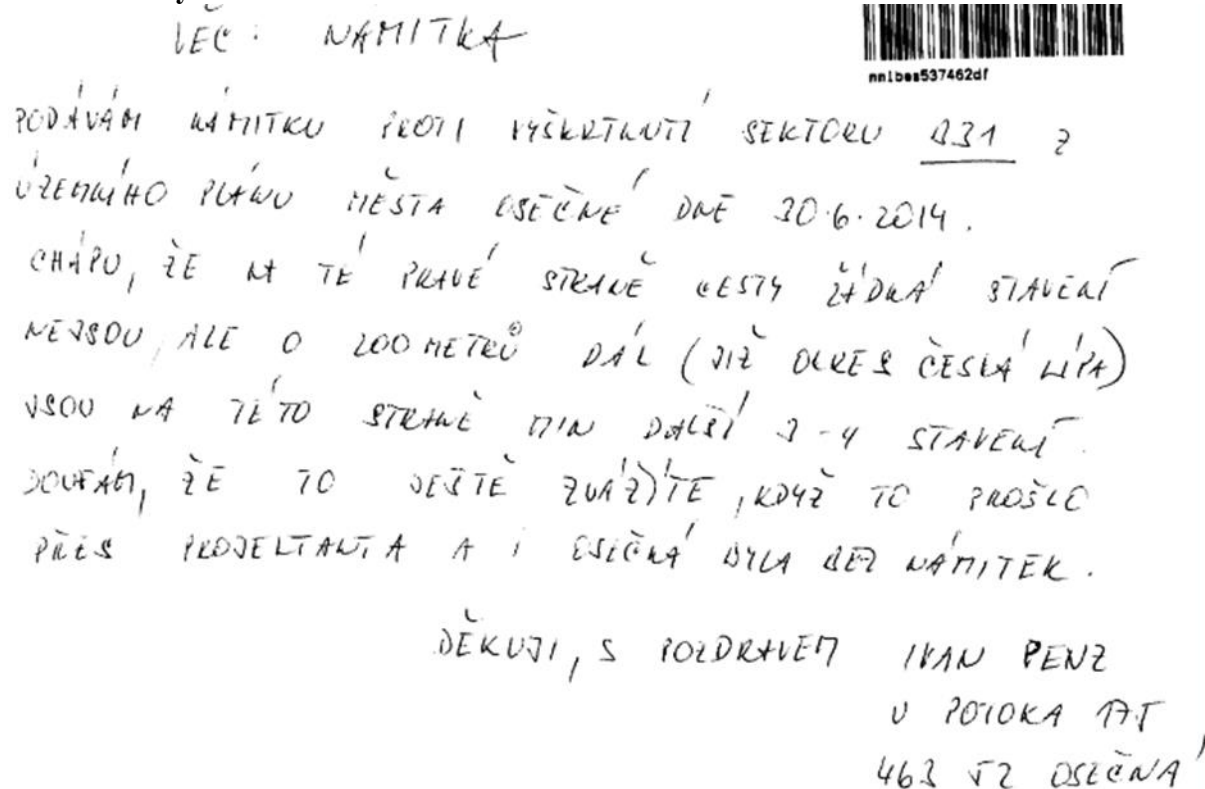 VĚC: NÁMITKA
nnlbes537462df
PODÁVÁM NÁMITKU PROTI VYŠKRTNUTÍ SEKTORU B31 Z
ÚZEMNÍHO PLÁNU MĚSTA OSEČNÉ DNE 30.6.2014.
CHÁPU, ŽE NA TÉ PRAVÉ STRANĚ CESTY ŽÁDNÁ STAVENÍ
NEJSOU, ALE O 200 METRŮ DÁL (JIŽ OKRES ČESKÁ LÍPA)
JSOU NA TÉTO STRANĚ MIN DALŠÍ 3-4 STAVENÍ.
DOUFÁM, ŽE TO JEŠTĚ ZVÁŽÍTE, KDYŽ TO PROŠLO
PŘES PROJEKTANTA A I OSEČNÁ BYLA BEZ NÁMITEK.
DĚKUJI, S POZDRAVEM IVAN PENZ
U POTOKA
463 52 OSEČNÁ